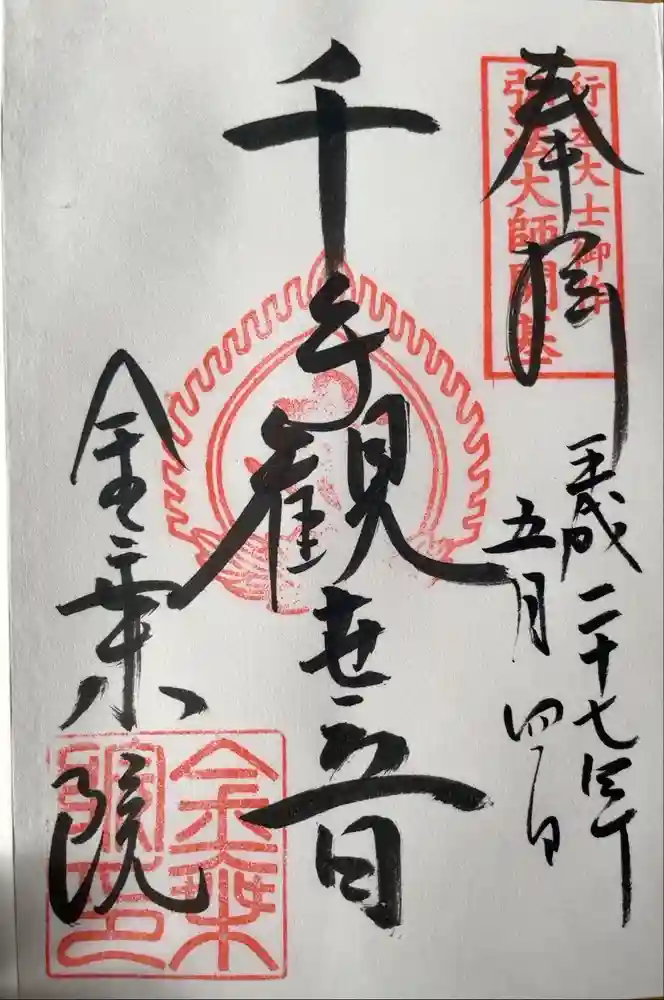 奉拝
行基大士御作
弘法大師開基
平成二十七年
五月四日
千手観世音
金乗院
金乗
院印